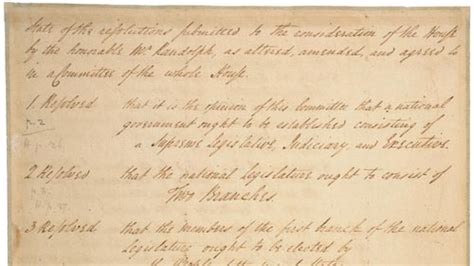 State of the resolutions submitted to the consideration of the House
by the honorable Mr. Randolph, as altered, amended, and agreed to
in a Committee of the whole House.
1. Resolved that it is the opinion of this Committee that a national
government ought to be established consisting of
a Supreme Legislative, Judiciary, and Executive.
2 Resolved that the national Legislature ought to consist of
Two Branches.
3 Resolved that the members of the first branch of the national
Legislature ought to be elected by